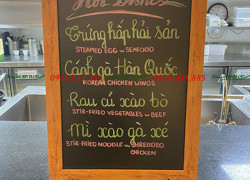 Hot Dishes
Trứng hấp hải sản
STEAMED EGG W SEAFOOD
Cánh gà Hàn Quốc
KOREAN CHICKEN WINGS
Rau củ xào bò
STIR-FRIED VEGETABLES W BEEF
Mì xào gà xé
STIR-FRIED NOODLE W SHREDDED
CHICKEN